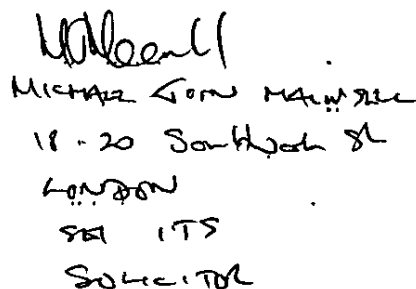 MICHAEL JOHN
18-20 Southwark St
LONDON
SE1 1TJ
SOLICITOR